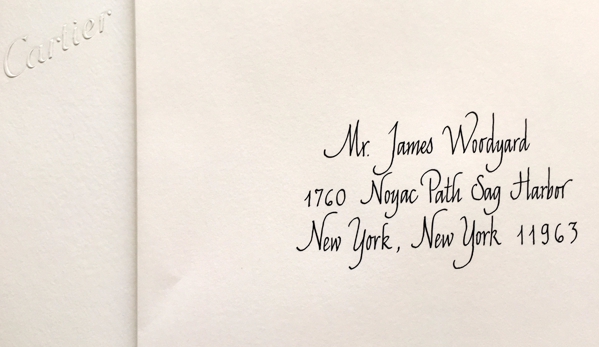 Cartier
Mr. James Woodyard
1760 Noyac Path Sag Harbor
New York, New York 11963